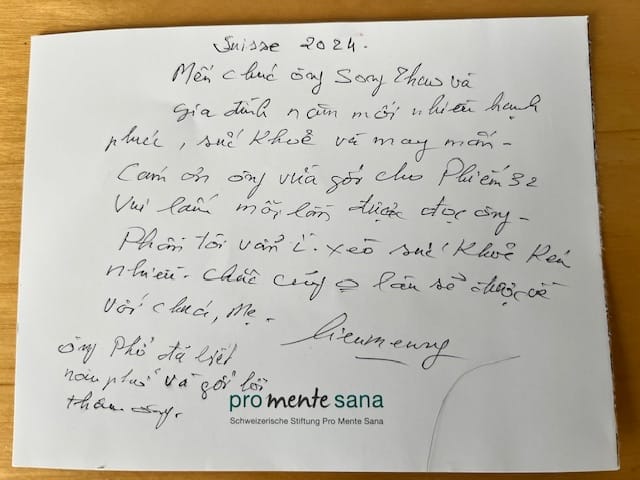 Suisse 2024.
Mến chúc ông Song Thao và
gia đình năm mới nhiều hạnh
phúc, sức khoẻ và may mắn -
Cám ơn ông vừa gởi cho Phiếm 32
Vui lắm mỗi lần được đọc ông -
Phần tôi vẫn ì. xèo sức khoẻ kém
nhiều. Chắc cũng lần sẽ được về
với chúa, Mẹ.
ông Phố đã liệt
và gởi lời
thăm ông.
pro mente sana
Schweizerische Stiftung Pro Mente Sana